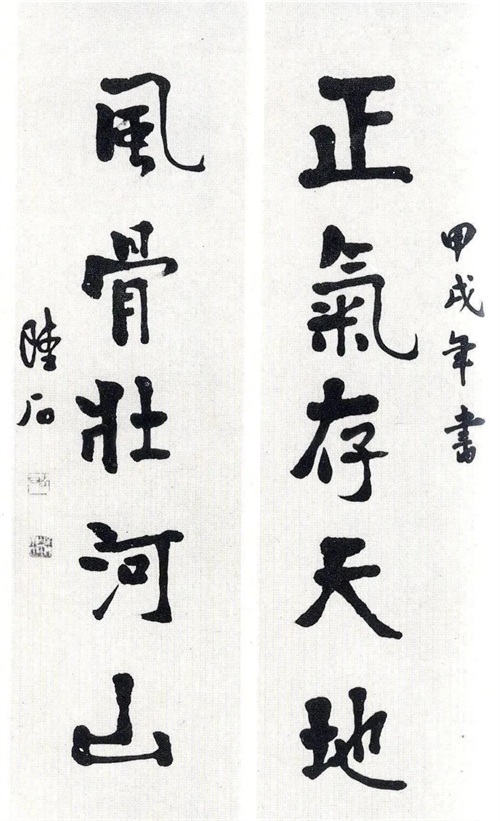 甲戌年書
正氣存天地
風骨壯河山
陸石